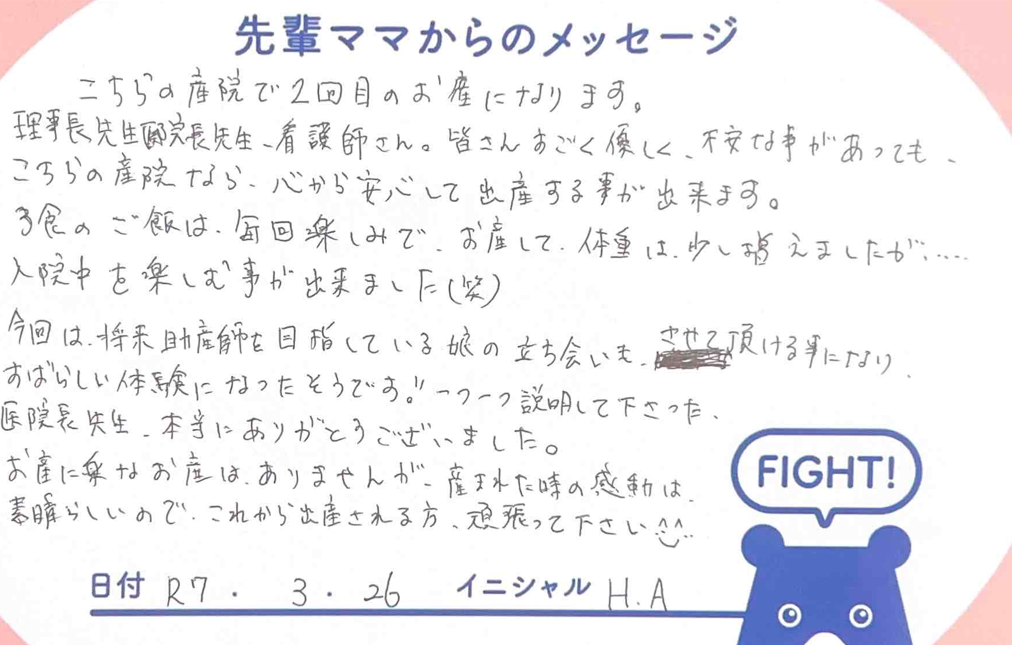 先輩ママからのメッセージ
こちらの産院で2回目のお産になります。
理事長先生、医院長先生、看護師さん。皆さんすごく優しく、不安な事があっても、
こちらの産院なら、心から安心して出産する事が出来ます。
3食のご飯は、毎回楽しみで、お産して、体重は、少し増えましたが、……
入院中を楽しむ事が出来ました(笑)
今回は、将来助産師を目指している娘の立ち会いも、させて頂ける事になり、
すばらしい体験になったそうです!!一つ一つ説明して下さった、
医院長先生、本当にありがとうございました。
お産に楽なお産は、ありませんが、産まれた時の感動は、
素晴らしいので、これから出産される方、頑張って下さい^^
FIGHT!
日付 R7. 3. 26 イニシャル H.A